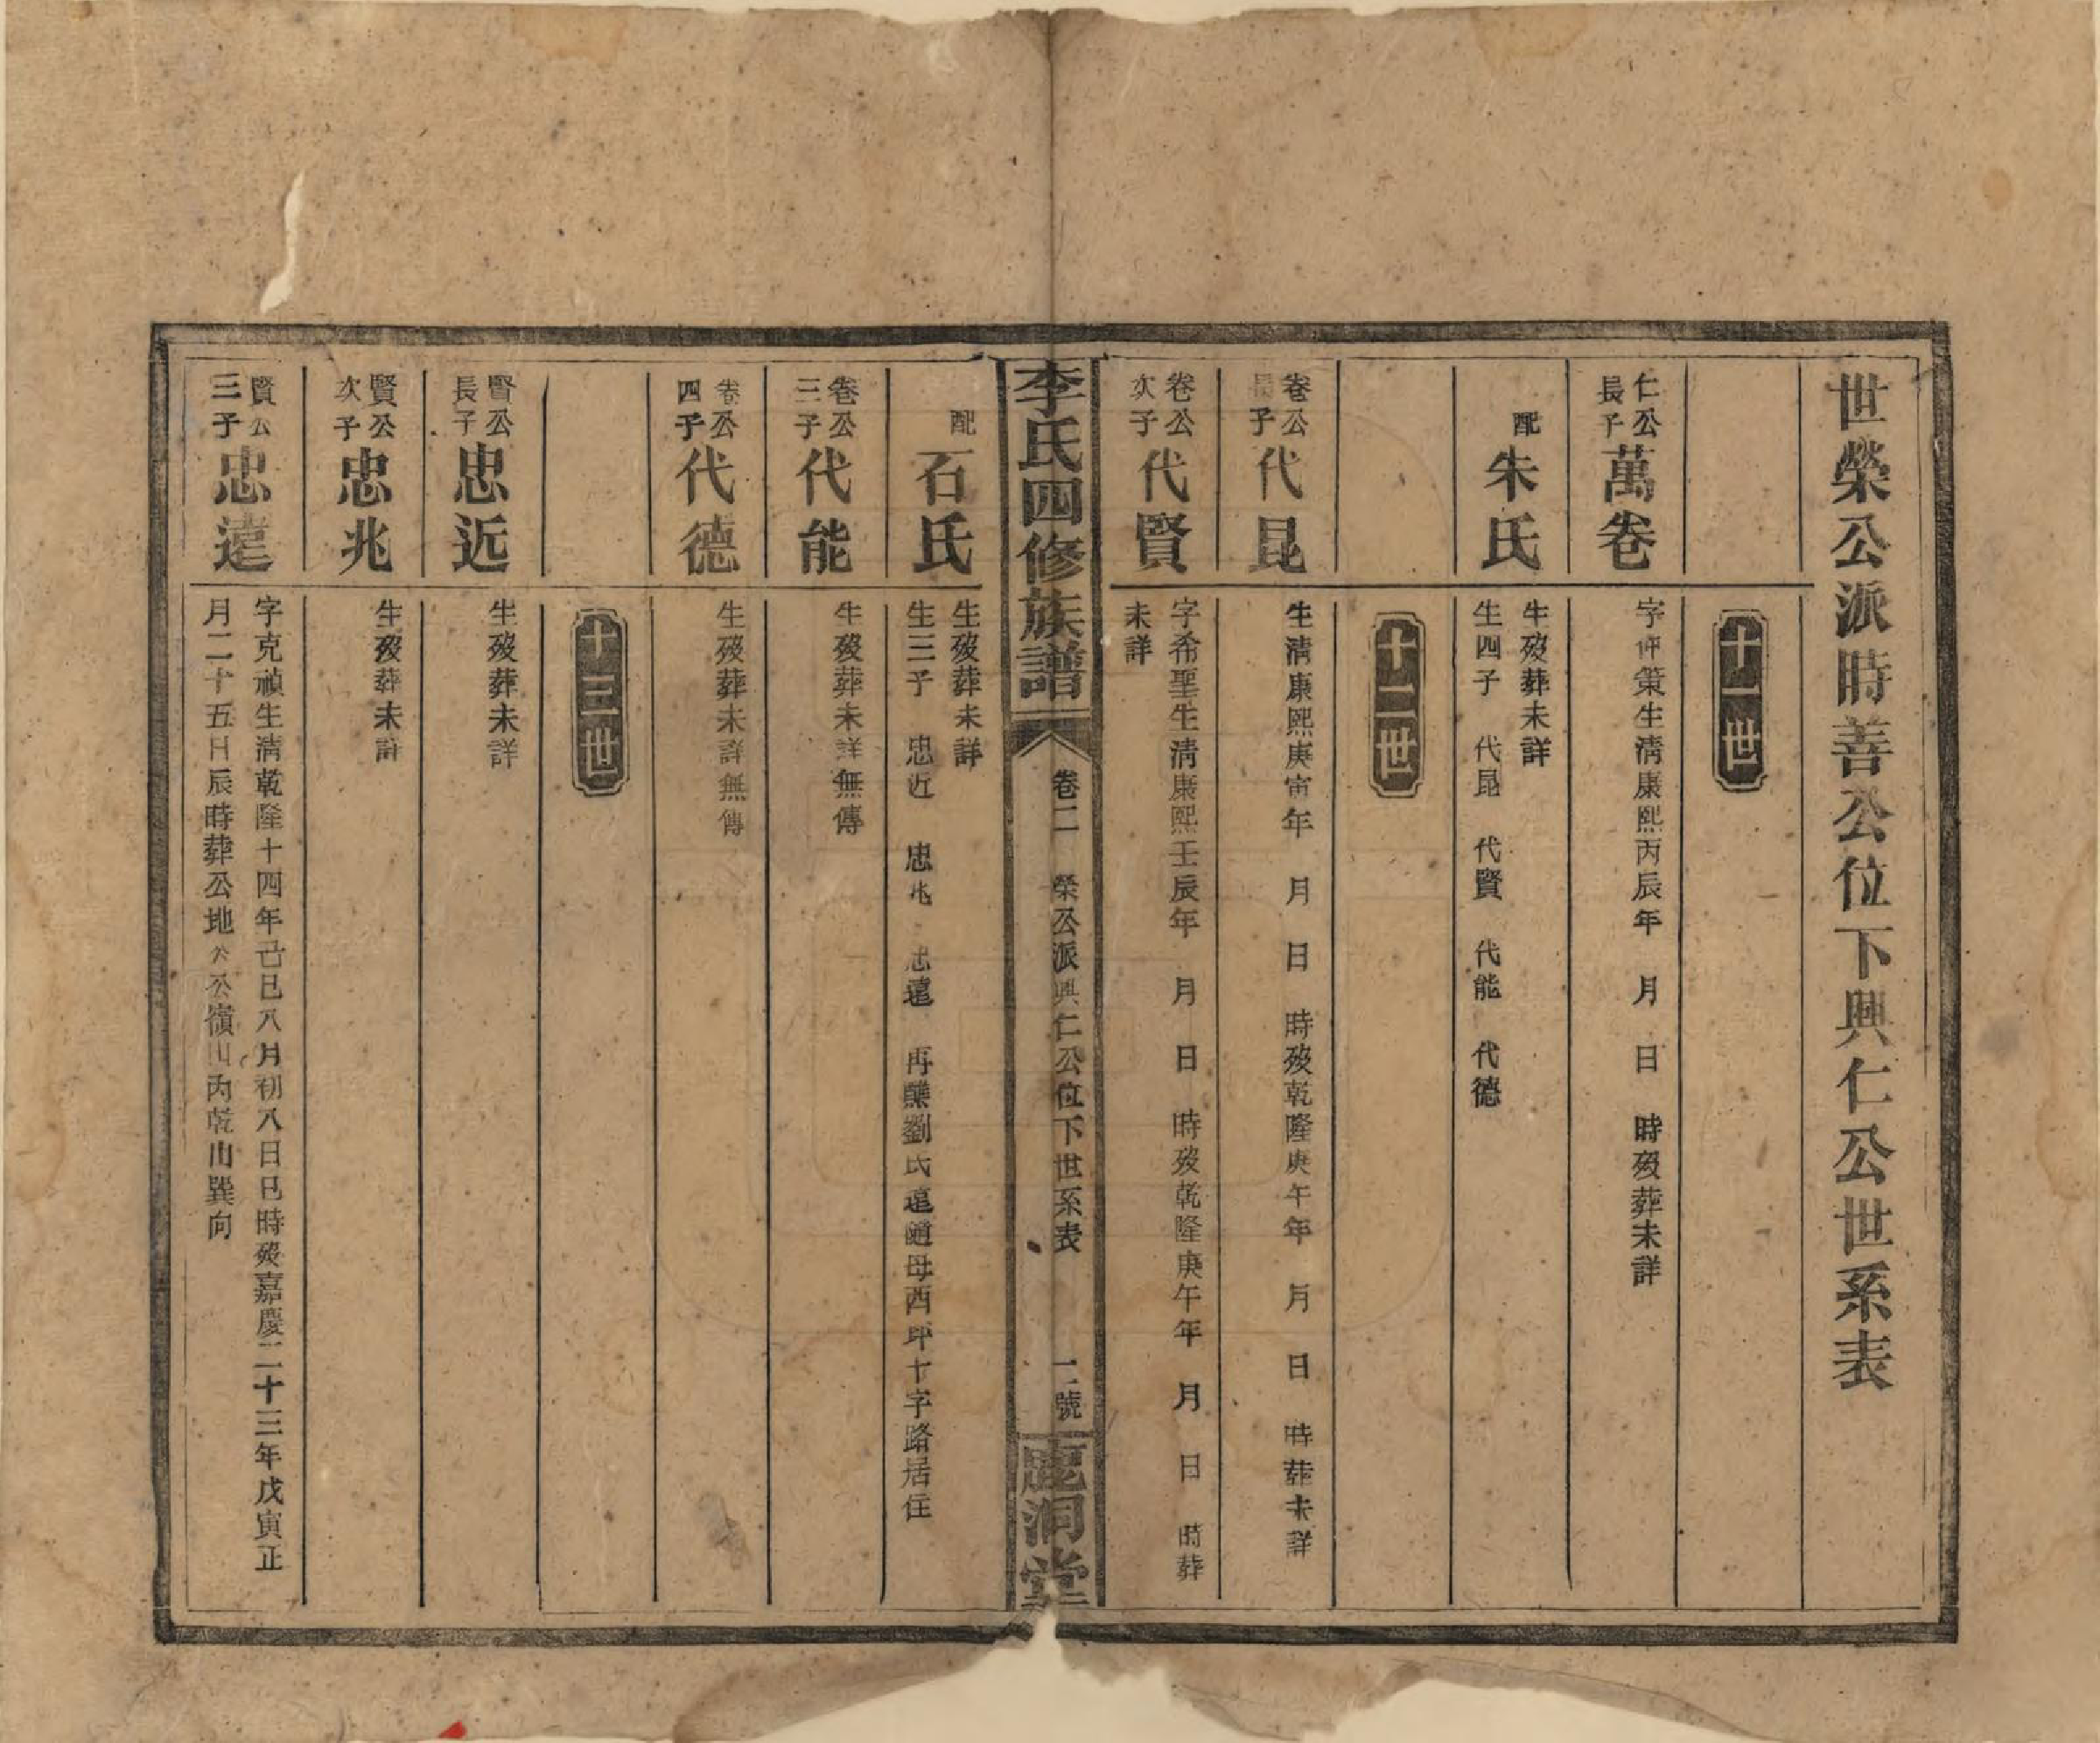 世榮公派時善公位下興仁公世系表
十一世
仁公
長子
萬卷
字仲策生清康熙丙辰年　月　日　時歿葬未詳
配
朱氏
生歿葬未詳
生四子　代昆　代賢　代能　代德
十二世
卷公
長子
代昆
生清康熙庚寅年　月　日　時歿乾隆庚午年　月　日　時葬未詳
卷公
次子
代賢
字希聖生清康熙壬辰年　月　日　時歿乾隆庚午年　月　日　時葬
未詳
李氏四修族譜
卷二　榮公派興仁公位下世系表
二號
鹿洞堂
配
石氏
生歿葬未詳
生三子　忠近　忠兆　忠遠　再醮劉氏遠隨母西坪十字路居住
卷公
三子
代能
生歿葬未詳無傳
卷公
四子
代德
生歿葬未詳無傳
十三世
賢公
長子
忠近
生歿葬未詳
賢公
次子
忠兆
生歿葬未詳
賢公
三子
忠遠
字克禎生清乾隆十四年己巳八月初八日巳時歿嘉慶二十三年戊寅正
月二十五日辰時葬公地公嶺山內乾山巽向